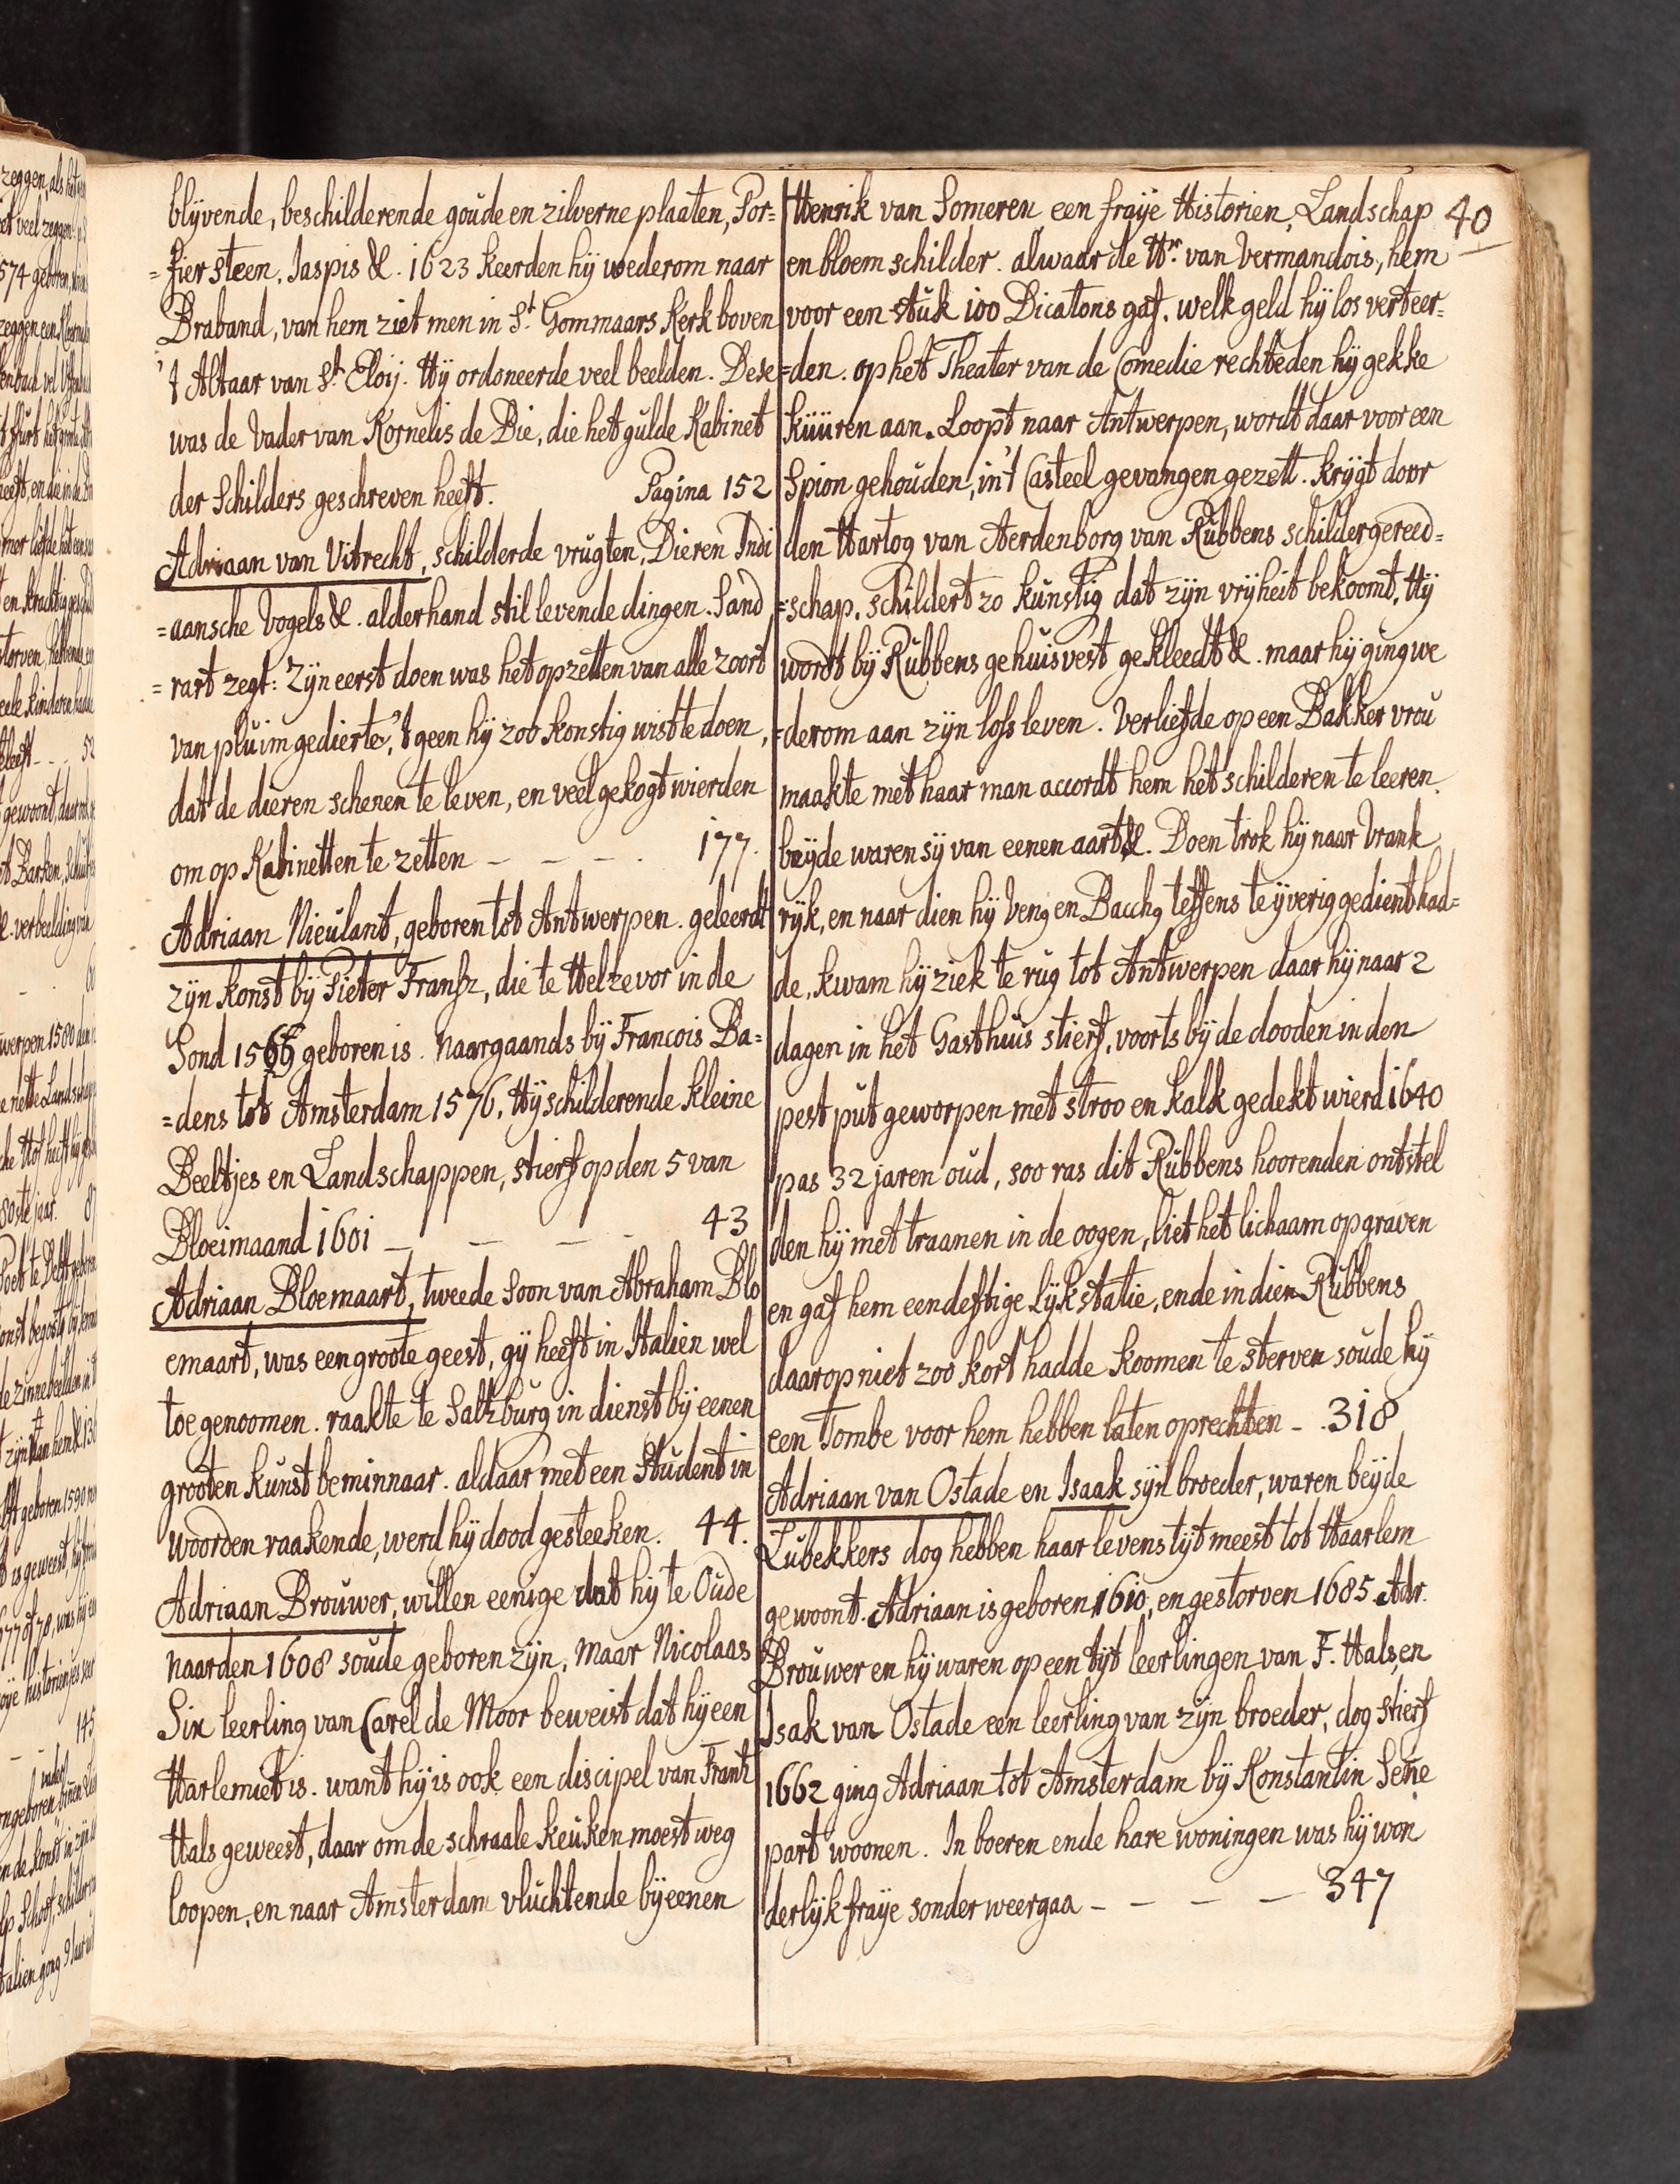 blijvende, beschilderende goude en zilverne plaaten, Por=
=fier steen, Iaspis &. 1623 keerden hij wederom naar
Braband, van hem ziet men in St. Gommaars Kerk boven
't Altaar van St. Eloij. Hij ordoneerde veel beelden. Dese
was de Vader van Kornelis de Bie, die het gulde Kabinet
der Schilders geschreven heeft. Pagina 152
Adriaan van Vitrecht, schilderde vrugten, Dieren Indi
=aansche Vogels &. alderhand stil levende dingen. Sand
=rart zegt: Zijn eerst doen was het op zetten van alle zoort
van pluim gedierte, 't geen hij zoo konstig wist te doen,
dat de dieren schenen te leven, en veel gekogt wierden
om op Kabinetten te zetten – – – . 177.
Adriaan Nieulant, geboren tot Antwerpen. geleerdt
zijn konst bij Pieter Fransz, die te Helzevor in de
Sond 1566 geboren is. Naargaands bij Francois Ba=
=dens tot Amsterdam 1576, Hij schilderende kleine
Beeltjes en Landschappen, stierf op den 5 van
Bloeimaand 1601 – – – – 43
Adriaan Bloemaart, tweede Soon van Abraham Blo
emaart, was een groote geest, gij heeft in Italien wel
toe genoomen. raakte te Saltzburg in dienst bij eenen
grooten kunst beminnaar. aldaar met een Student in
woorden raakende, werd hij dood gesteeken. 44.
Adriaan Brouwer, willen eenige dat hij te Oude
naarden 1608 soude geboren zijn, Maar Nicolaas
Six leerling van Carel de Moor beweist dat hij een
Harlemiet is. want hij is ook een discipel van Frank
Hals geweest, daar om de schraale keuken moest weg
loopen, en naar Amsterdam vluchtende bij eenen
40
Henrik van Someren een fraije Historien, Landschap
en bloem schilder. alwaar de Hr. van Vermandois, hem
voor een stuk 100 Dicatons gaf. welk geld hij los verteer=
=den. op het Theater van de Comedie rechteden hij gekke
küüren aan. Loopt naar Antwerpen, wordt daar voor een
Spion gehouden, in 't Casteel gevangen gezett. krijgt door
den Hartog van Aerdenborg van Rubbens schildergereed=
=schap. schildert zo kunstig dat zijn vrijheit bekoomt, Hij
wordt bij Rubbens gehuisvest gekleedt &. maar hij ging we
=derom aan zijn loss leven. Verliefde op een Bakker vrou
maakte met haar man accordt hem het schilderen te leeren.
beijde waren sij van eenen aart &. Doen trok hij naar Vrank
rijk, en naar dien hij Ven9 en Bacch9 teffens te ijverig gedient had=
de, kwam hij ziek te rug tot Antwerpen daar hij naar 2
dagen in het Gasthuis stierf, voorts bij de dooden in den
pest put geworpen met stroo en kalk gedekt wierd 1640
pas 32 jaren oud, soo ras dit Rubbens hoorenden ontstel
den hij met traanen in de oogen, liet het lichaam opgraven
en gaf hem een deftige lijkstatie, ende in dien Rubbens
daarop niet zoo kort hadde koomen te sterven soude hij
een Tombe voor hem hebben laten oprechten – . 318
Adriaan van Ostade en Isaak sijn broeder, waren beijde
Lubekkers dog hebben haar levens tijt meest tot Haarlem
gewoont. Adriaan is geboren 1610, en gestorven 1685. Adr.
Brouwer en hij waren op een tijt leerlingen van F. Hals, en
Isak van Ostade een leerling van zijn broeder, dog stierf
1662 ging Adriaan tot Amsterdam bij Konstantin Sene
part woonen. In boeren ende hare woningen was hij won
derlijk fraije sonder weergaa – – – – 347